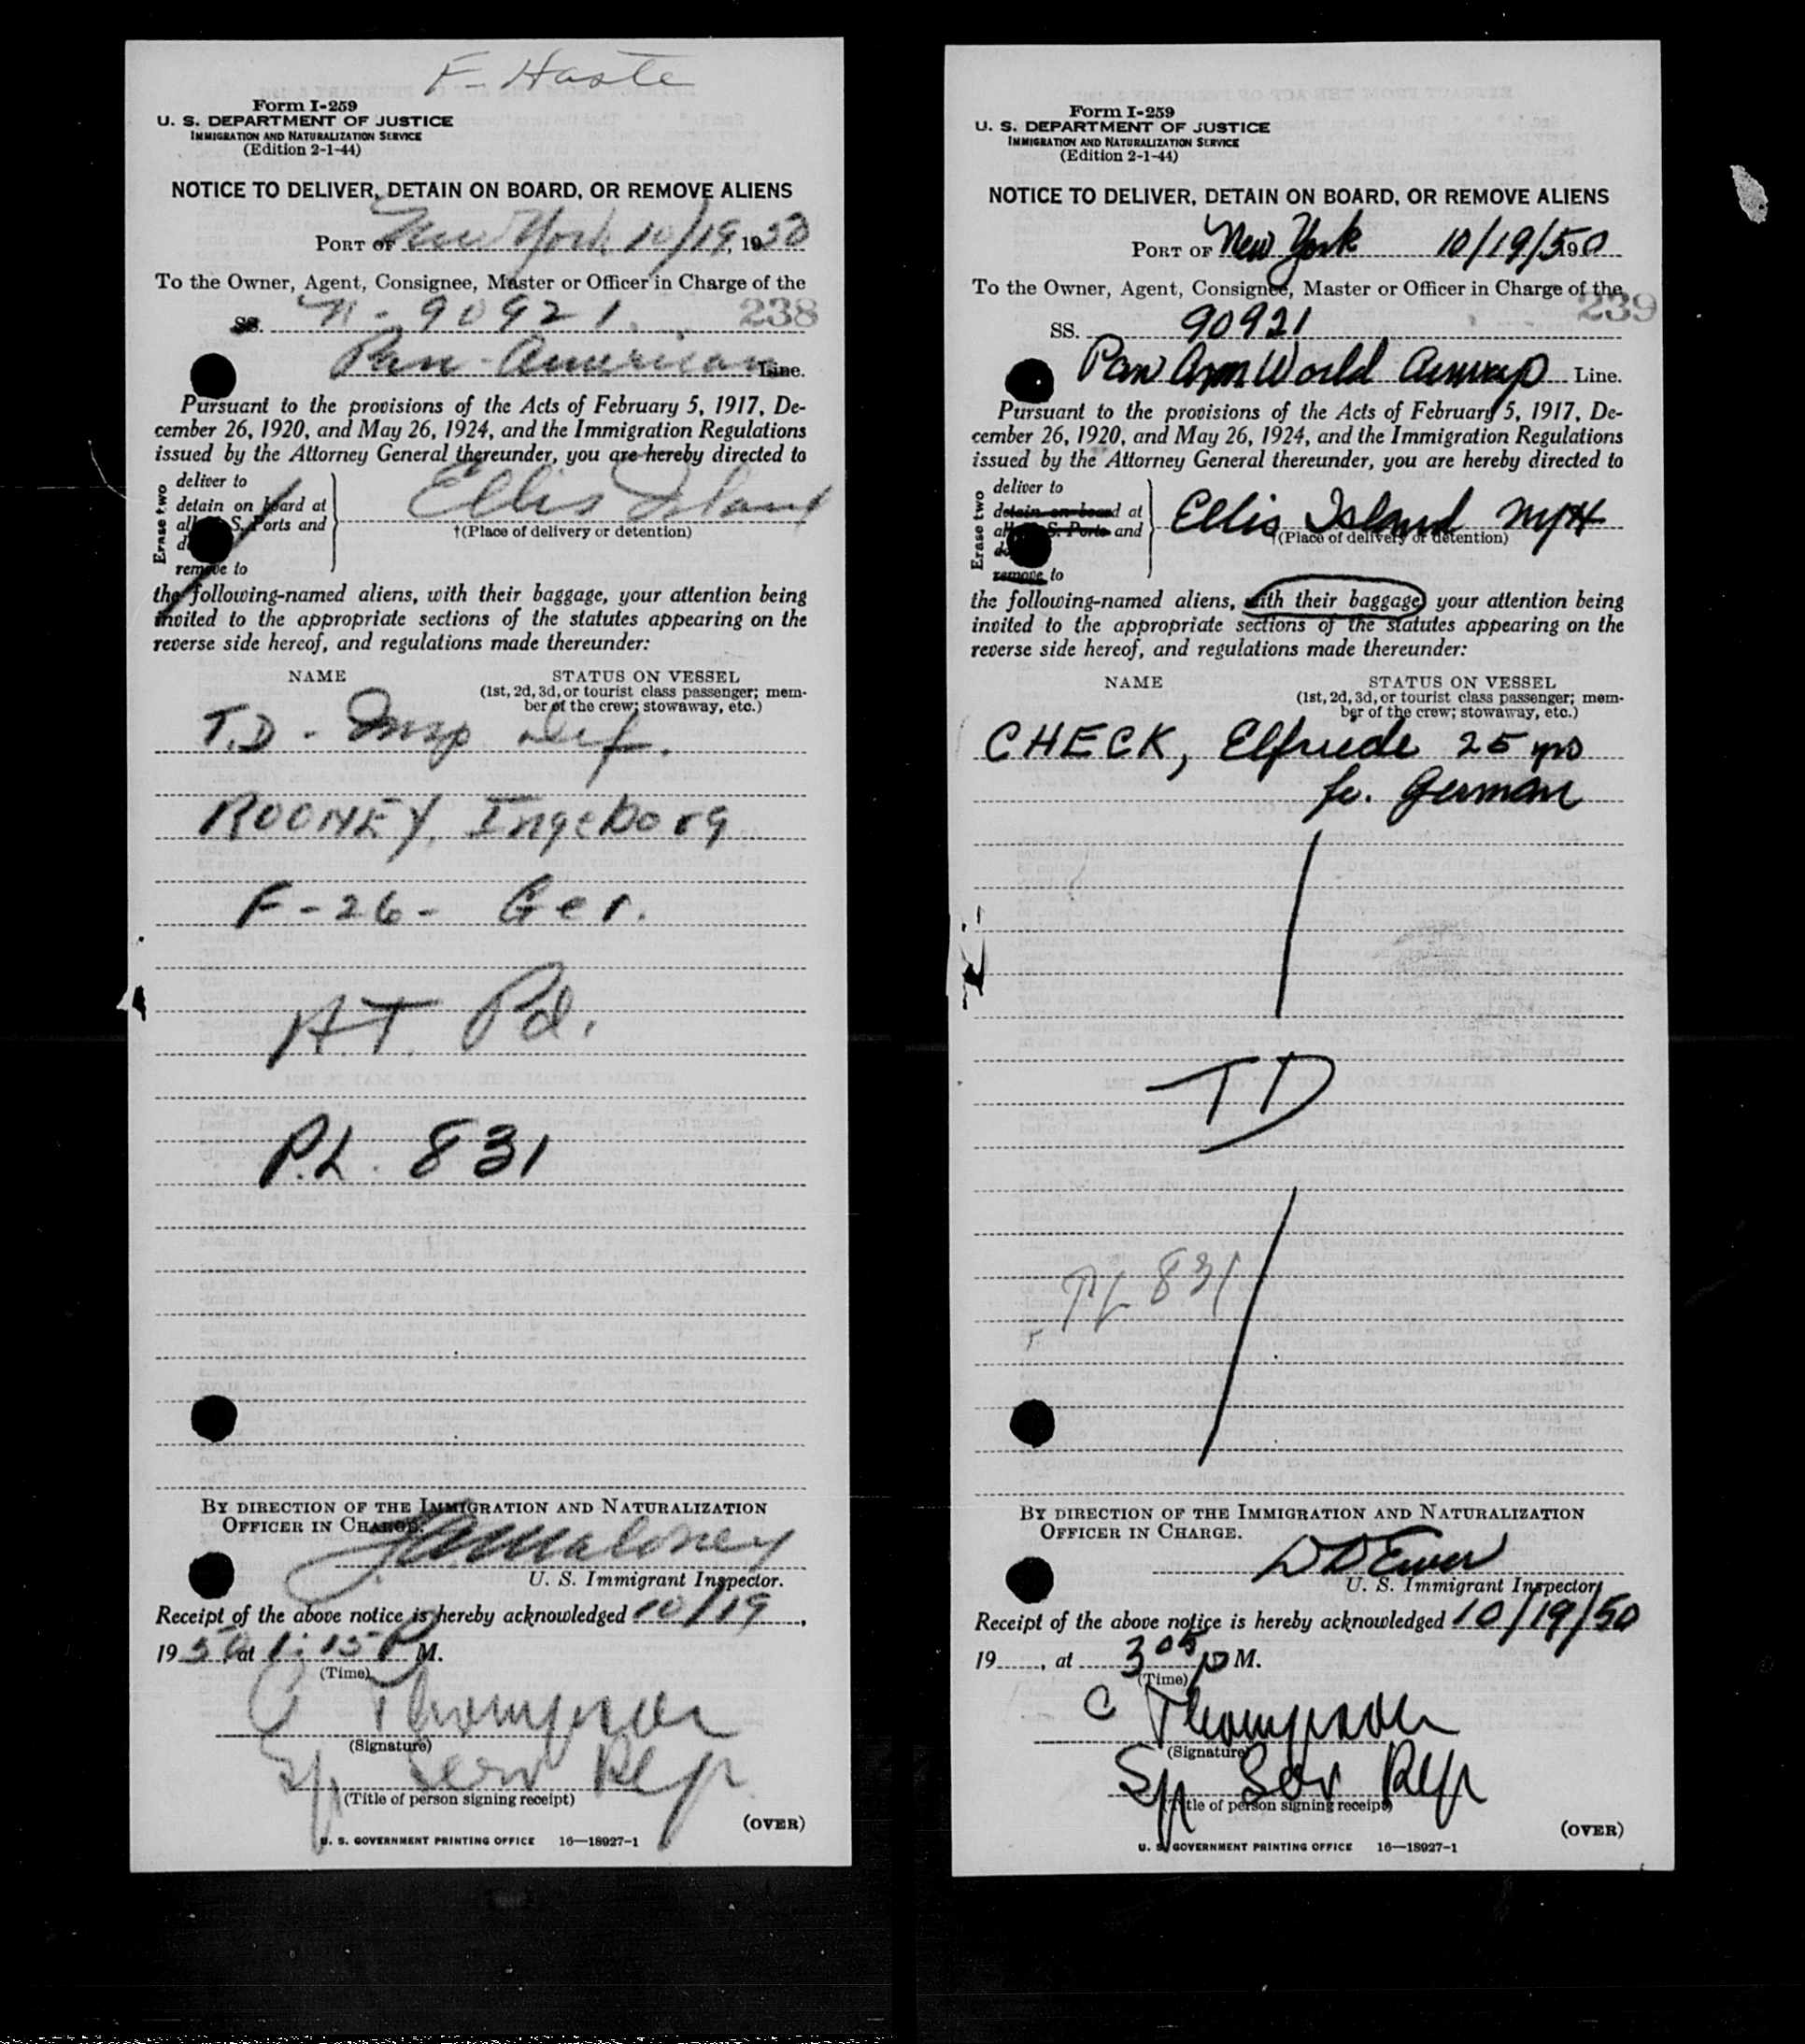 F. Haste
Form I-259
U. S. DEPARTMENT OF JUSTICE
IMMIGRATION AND NATURALIZATION SERVICE
(Edition 2-1-44)
NOTICE TO DELIVER, DETAIN ON BOARD, OR REMOVE ALIENS
PORT OF New York 10/19, 1950
To the Owner, Agent, Consignee, Master or Officer in Charge of the
238
SS. N-90921
Pan-American Line.
Pursuant to the provisions of the Acts of February 5, 1917, De-
cember 26, 1920, and May 26, 1924, and the Immigration Regulations
issued by the Attorney General thereunder, you are hereby directed to
Erase two
deliver to
detain on board at
all S. Ports and
remove to
Ellis Island
†(Place of delivery or detention)
the following-named aliens, with their baggage, your attention being
invited to the appropriate sections of the statutes appearing on the
reverse side hereof, and regulations made thereunder:
NAME STATUS ON VESSEL
(1st, 2d, 3d, or tourist class passenger; mem-
ber of the crew; stowaway, etc.)
T.D - Insp Def.
ROONEY, Ingeborg
F-26- Ger.
H.T. Pd.
P.L. 831
BY DIRECTION OF THE IMMIGRATION AND NATURALIZATION
OFFICER IN CHARGE.
Maloney
U. S. Immigrant Inspector.
Receipt of the above notice is hereby acknowledged 10/19,
1950, at 1:15 P M.
(Time)
C Thompson
(Signature)
Sp Serv Rep
(Title of person signing receipt)
(OVER)
U. S. GOVERNMENT PRINTING OFFICE 16—18927-1
Form I-259
U. S. DEPARTMENT OF JUSTICE
IMMIGRATION AND NATURALIZATION SERVICE
(Edition 2-1-44)
NOTICE TO DELIVER, DETAIN ON BOARD, OR REMOVE ALIENS
PORT OF New York 10/19/50
To the Owner, Agent, Consignee, Master or Officer in Charge of the
239
SS. 90921
Pan Am World Airways Line.
Pursuant to the provisions of the Acts of February 5, 1917, De-
cember 26, 1920, and May 26, 1924, and the Immigration Regulations
issued by the Attorney General thereunder, you are hereby directed to
Erase two
deliver to
detain on board at
all S. Ports and
remove to
Ellis Island NYH
†(Place of delivery or detention)
the following-named aliens, with their baggage, your attention being
invited to the appropriate sections of the statutes appearing on the
reverse side hereof, and regulations made thereunder:
NAME STATUS ON VESSEL
(1st, 2d, 3d, or tourist class passenger; mem-
ber of the crew; stowaway, etc.)
CHECK, Elfriede 25 yrs
fe. German
TD
PL 831
BY DIRECTION OF THE IMMIGRATION AND NATURALIZATION
OFFICER IN CHARGE.
U. S. Immigrant Inspector.
Receipt of the above notice is hereby acknowledged 10/19/50
19 , at 3 05 p M.
(Time)
C Thompson
(Signature)
Sp Serv Rep
(Title of person signing receipt)
(OVER)
U. S. GOVERNMENT PRINTING OFFICE 16—18927-1